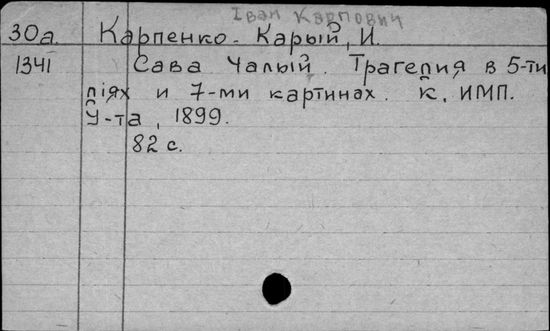 Іван Карпович
30а. Карпенко-Карый, И.
1341 Сава Чалый. Трагепия в 5-ти
піях и 7-ми картинах. К, ИМП.
У-та, 1899.
82 с.